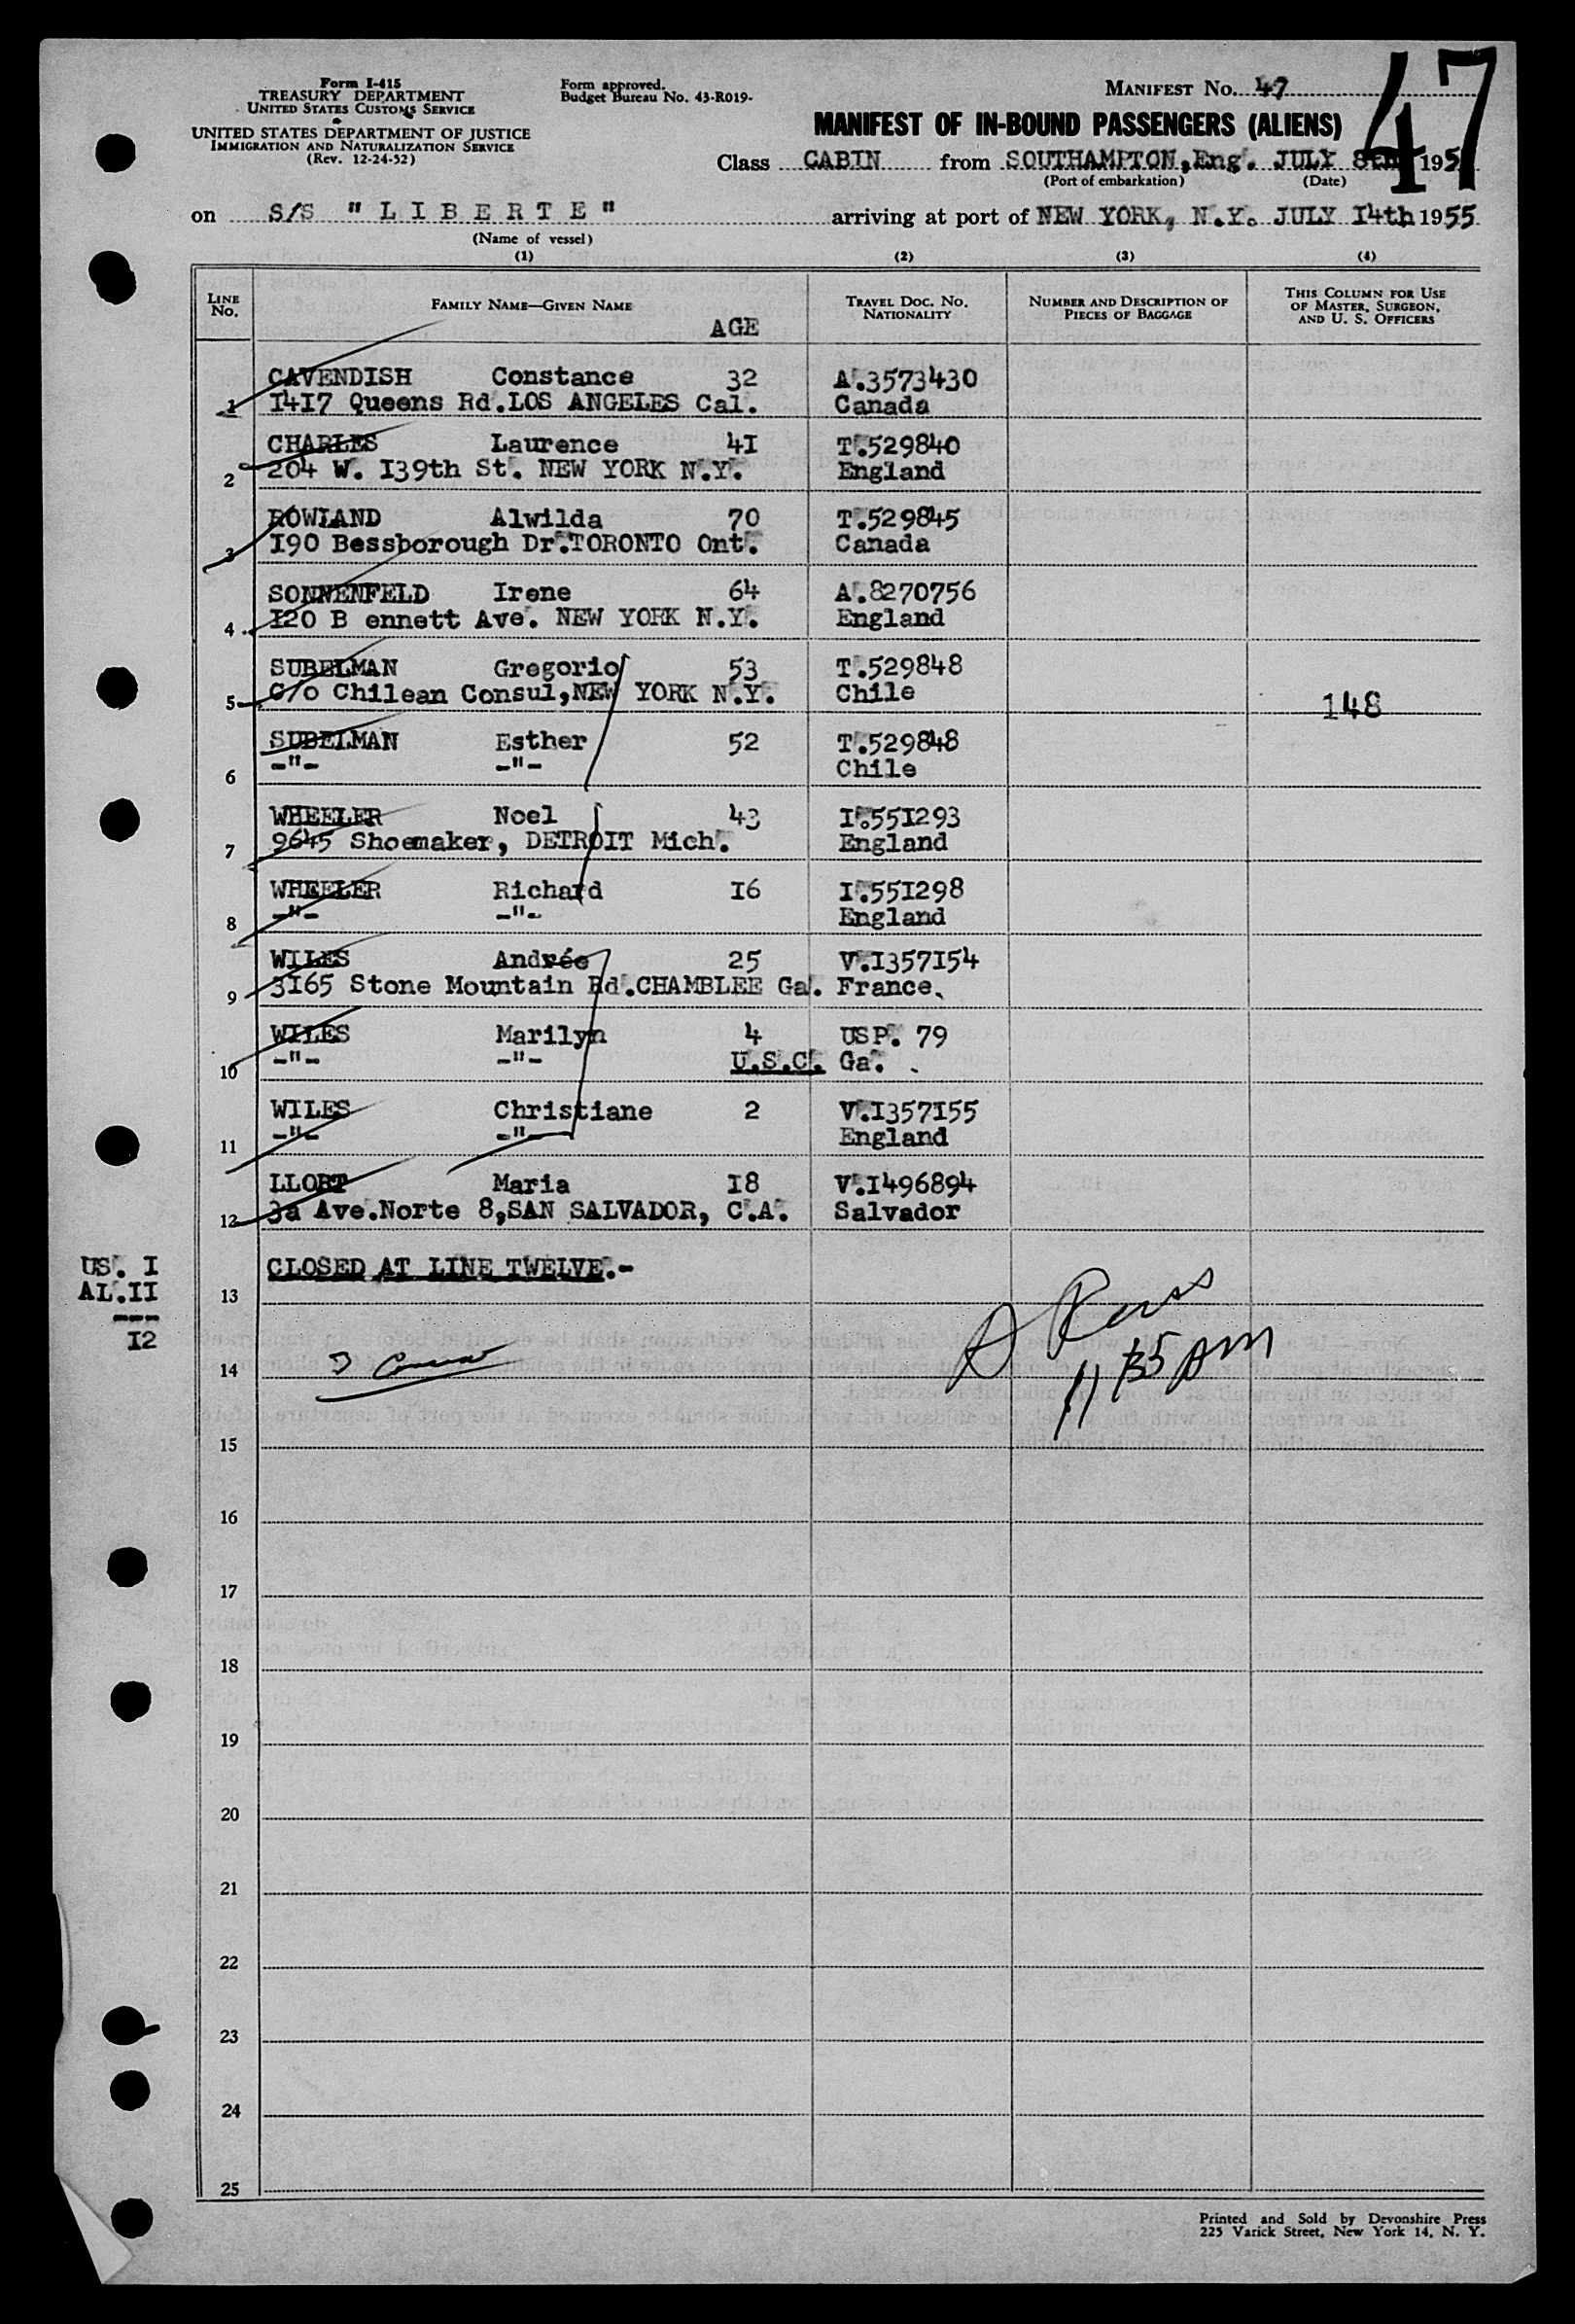 Form I-415
TREASURY DEPARTMENT
UNITED STATES CUSTOMS SERVICE
UNITED STATES DEPARTMENT OF JUSTICE
IMMIGRATION AND NATURALIZATION SERVICE
(Rev. 12-24-52)
Form approved.
Budget Bureau No. 43-R019-
MANIFEST No. 47
47
MANIFEST OF IN-BOUND PASSENGERS (ALIENS)
Class CABIN from SOUTHAMPTON,Eng. JULY 8th 195
(Port of embarkation) (Date)
on S/S "LIBERTE" arriving at port of NEW YORK, N.Y. JULY I4th 1955
(Name of vessel)
(1) (2) (3) (4)
LINE No. FAMILY NAME—GIVEN NAME AGE TRAVEL DOC. NO. NATIONALITY NUMBER AND DESCRIPTION OF PIECES OF BAGGAGE THIS COLUMN FOR USE OF MASTER, SURGEON, AND U. S. OFFICERS
CAVENDISH Constance 32 A.3573430
1 I4I7 Queens Rd.LOS ANGELES Cal. Canada
CHARLES Laurence 4I T.529840
2 204 W. I39th St. NEW YORK N.Y. England
ROWLAND Alwilda 70 T.529845
3 I90 Bessborough Dr.TORONTO Ont. Canada
SONNENFELD Irene 64 A.8270756
4 I20 B ennett Ave. NEW YORK N.Y. England
SUBELMAN Gregorio 53 T.529848
5 C/o Chilean Consul,NEW YORK N.Y. Chile 148
SUBELMAN Esther 52 T.529848
6 -"- -"- Chile
WHEELER Noel 43 I.55I293
7 9645 Shoemaker, DETROIT Mich. England
WHEELER Richard I6 I.55I298
8 -"- -"- England
WILES Andrée 25 V.I357I54
9 3I65 Stone Mountain Rd.CHAMBLEE Ga. France.
WILES Marilyn 4 USP. 79
10 -"- -"- U.S.C. Ga.
WILES Christiane 2 V.I357I55
11 -"- -"- England
LLORT Maria I8 V.I496894
12 3a Ave.Norte 8,SAN SALVADOR, C.A. Salvador
US. I
AL.II
---
I2
CLOSED AT LINE TWELVE.-
13
14
11 35 AM
15
16
17
18
19
20
21
22
23
24
25
Printed and Sold by Devonshire Press
225 Varick Street, New York 14, N. Y.